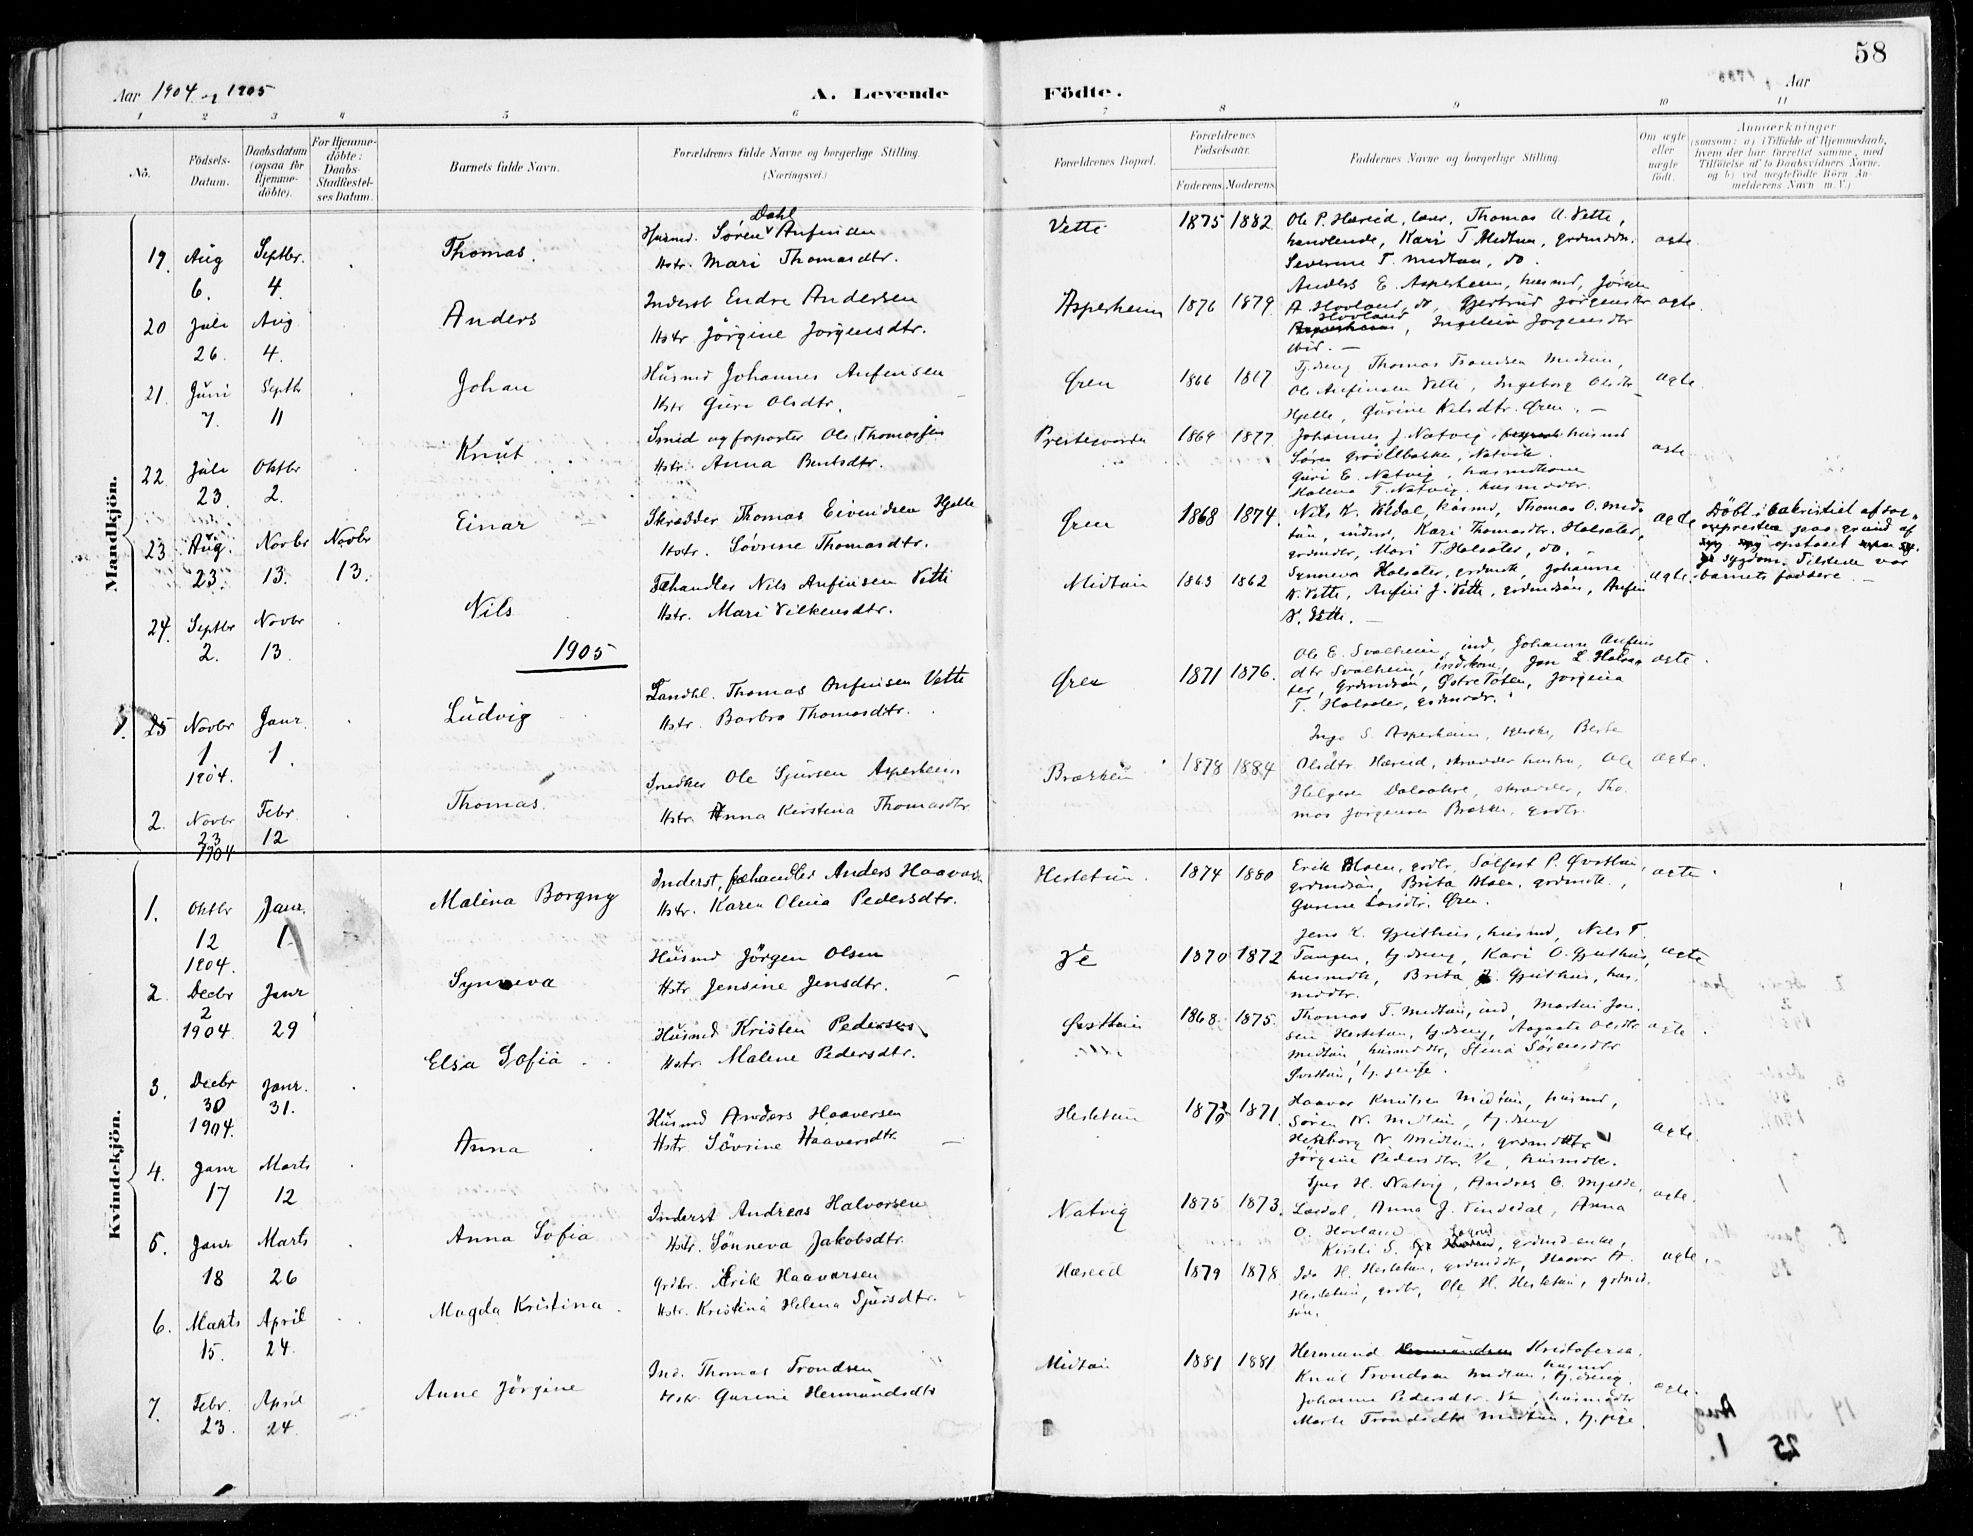 58
Aar 1904 og 1905
A. Levende
Födte.
Aar
1 2 3 4 5 6 7 8 9 10 11
No.
Födsels-
Datum.
Daabsdatum
(ogsaa för
Hjemme-
döbte).
For Hjemme-
döbte:
Daabs-
Stadfæstel-
ses Datum.
Barnets fulde Navn.
Forældrenes fulde Navne og borgerlige Stilling.
(Næringsvei.)
Forældrenes Bopæl.
Forældrenes
Födselsaar.
Faderens. Moderens.
Faddernes Navne og borgerlige Stilling.
Om ægte
eller
uægte
födt.
Anmærkninger
(saasom: a) i Tilfælde af Hjemmedaab,
hvem der har forrettet samme, med
Tilföielse af to Daabsvidners Navne,
og b) ved uegtefödte Börn An-
melderens Navn m. V.)
Mandkjön.
19. Aug 6. Septbr. 4. Thomas.
Husmd. Sören Dahl Anfinsen
Hstr. Mari Thomasdtr.
Vetti 1875 1882
Ole P. Hæreid, lærer, Thomas A. Vette,
handlende, Kari T. Midtun, grdmdtr.
Severine T. Midtun, do.
ægte.
20 Juli 26. Aug 4. Anders
Inderst Endre Andersen
Hstr Jörgine Jörgensdtr.
Asperheim 1876 1879
Anders E. Asperheim, husmd, Jörgen
A. Hovland, do, Gjertrud Jörgensdtr
Hovland, Ingeleiv Jörgensdtr
ibid. —
ægte.
21. Juni 7. Septb 11 Johan
Husmd Johannes Anfinsen
Hstr Guri Olsdtr.
Øren 1866 1867
Tj.dreng Thomas Trondsen Midtun,
Ole Anfinsen Vetti, Ingeborg Olsdtr
Hjelle, Gurine Nilsdtr. Øren. —
ægte.
22. Juli 23. Oktbr 2. Knut
Smid og forpagter Ole Thomassen
Hstr. Anna Bentsdtr.
1869 1877
Johannes J. Natvig, husmd
Sören
Guri E. Natvig, husmdkone
Halena T. Natvig, husmddtr.
ægte
23. Aug. 23. Novbr 13. Novbr 13. Einar
Skrædder Thomas Eivendsen Hjelle
Hstr. Sövrine Thomasdtr.
Øren 1868 1874.
Nils K. Vedal, husmd, Thomas O. Mid-
tun, inderst, Kari Thomasdtr. Holsæter,
grdmdtr, Mari T. Holsæter, do. —
ægte.
Döbt i sakristiet af sog-
nepresten paa grund af
opstaaet
sygdom. Tilstede var
barnets faddere. —
24. Septbr 2. Novbr 13. Nils
Fæhandler Nils Anfinsen Vetti
Hstr. Mari Vilkensdtr.
Midtun 1863 1862
Synneva Holsæter, grdmdk, Johanne
N. Vette, Anfin J. Vette, grdmdsön, Anfin
N. Vette. —
ægte.
1905
1. 25 Novbr 1 1904. Janr. 1. Ludvig
Landhl. Thomas Anfinsen Vette
Hstr. Barbro Thomasdtr.
Øren 1871 1876.
Ole E. Svalheim, ind, Johanne Anfins
dtr Svalheim, indrkone, Jon L. Holsæ-
ter, grdmdsön, Østre Toten, Jorgina
T. Holsæter, grdmddtr.
ægte.
2. Novbr 23 1904 Febr. 12 Thomas.
Snedker Ole Sjursen Asperheim
Hstr. Anna Kirstina Thomasdtr
1878 1884
Inga S. Asperheim, Berte
Olsdtr Hæreid, skrædder hustru, Ole
Helgesen, skrædder, Tho-
mas Jörgensen, grdbr.
ægte.
Kvindekjön.
1. Oktbr 12 1904. Janr. 1. Malina Borgny
Inderst, fæhandler Anders Haavars
Hstr. Karen Olina Pedersdtr.
Hestetun. 1874 1880
Erik Moen, grdbr, Sölfest P. Øvsttun,
grdmdsön, Brita Moen, grdmdk.,
Gurine Larsdtr. Øren.
ægte.
2. Decbr 2 1904 Janr 29 Synneva
Husmd Jörgen Olsen
Hstr Jensine Jensdtr.
Ve 1870 1872
Jens K. Gjuthus, husmd, Nils T.
Tangen, tj.dreng, Kari O. Gjuthus,
husmdk, Brita J. Gjuthus, hus-
mddtr.
ægte
3. Decbr 30 1904. Janr. 31. Elsa Sofia
Husmd Kristen Pedersen
Hstr. Malene Pedersdtr.
Øvsttun 1868. 1875.
Thomas T. Midtun, ind, Martin Jon-
sen Hestetun, tj.dreng, Aagaate Olsdtr
Midtun, husmddtr, Stina Sörensdtr
Øvsttun, tj.pige.
ægte.
4. Janr 17 Marts 12 Anna
Husmd Anders Haaversen
Hstr. Sövrine Haaversdtr.
Hestetun 1870 1871.
Haavar Knutsen Midtun, husmd,
Sören N. Midtun, tj.dreng
N. Midtun, grdmddtr
Jörgine Pedersdtr. Ve, husmdk.
ægte.
5. Janr 18 Marts 26 Anna Sofia
Inderst Andreas Halvorsen
Hstr. Sönneva Jakobsdtr.
Natvig 1875 1873.
Sjur H. Natvig, Andres O. Mjelde,
Lærdal, Anna J. Vindedal, Anna
O. Hovland
ægte.
6. Marts 15. April 24. Magda Kristina.
Grdbr. Erik Haavarsen
Hstr. Kristina Helena Sjursdtr.
Hæreid 1879 1878
Kirsti S., grdmd enke,
Ida H. Hestetun, grdmddtr, Haavar A.
Hestetun, grdbr, Ole H. Hestetun, grdmd-
sön.
ægte.
7. Febr. 23. April 24. Anne Jörgine
Ind. Thomas Trondsen
Hstr Gurine Hermundsdtr
Midtun 1881 1881
Hermund Kristofersen
husmd
Knut Trondsen Midtun, tj.dreng.
Johanne Pedersdtr. Ve, husmddtr
Marte Trondsdtr Midtun, tj.pige.
ægte.